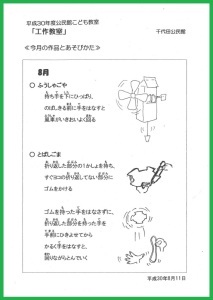 平成30年度公民館こども教室
「工作教室」
千代田公民館
≪今月の作品とあそびかた≫
8月
○ ふうしゃごや
持ち手を下にひっぱり、
のばしきる前に手をはなすと
風車がいきおいよく回る
○ とばしごま
折り返した部分の1かしょを持ち、
すぐヨコの折り返してない部分に
ゴムをかける
ゴムを持った手をはなさずに、
折り返した部分を持った手を
手前にひきよせてから
かるく手をはなすと、
回りながらとんでいく
平成30年8月11日